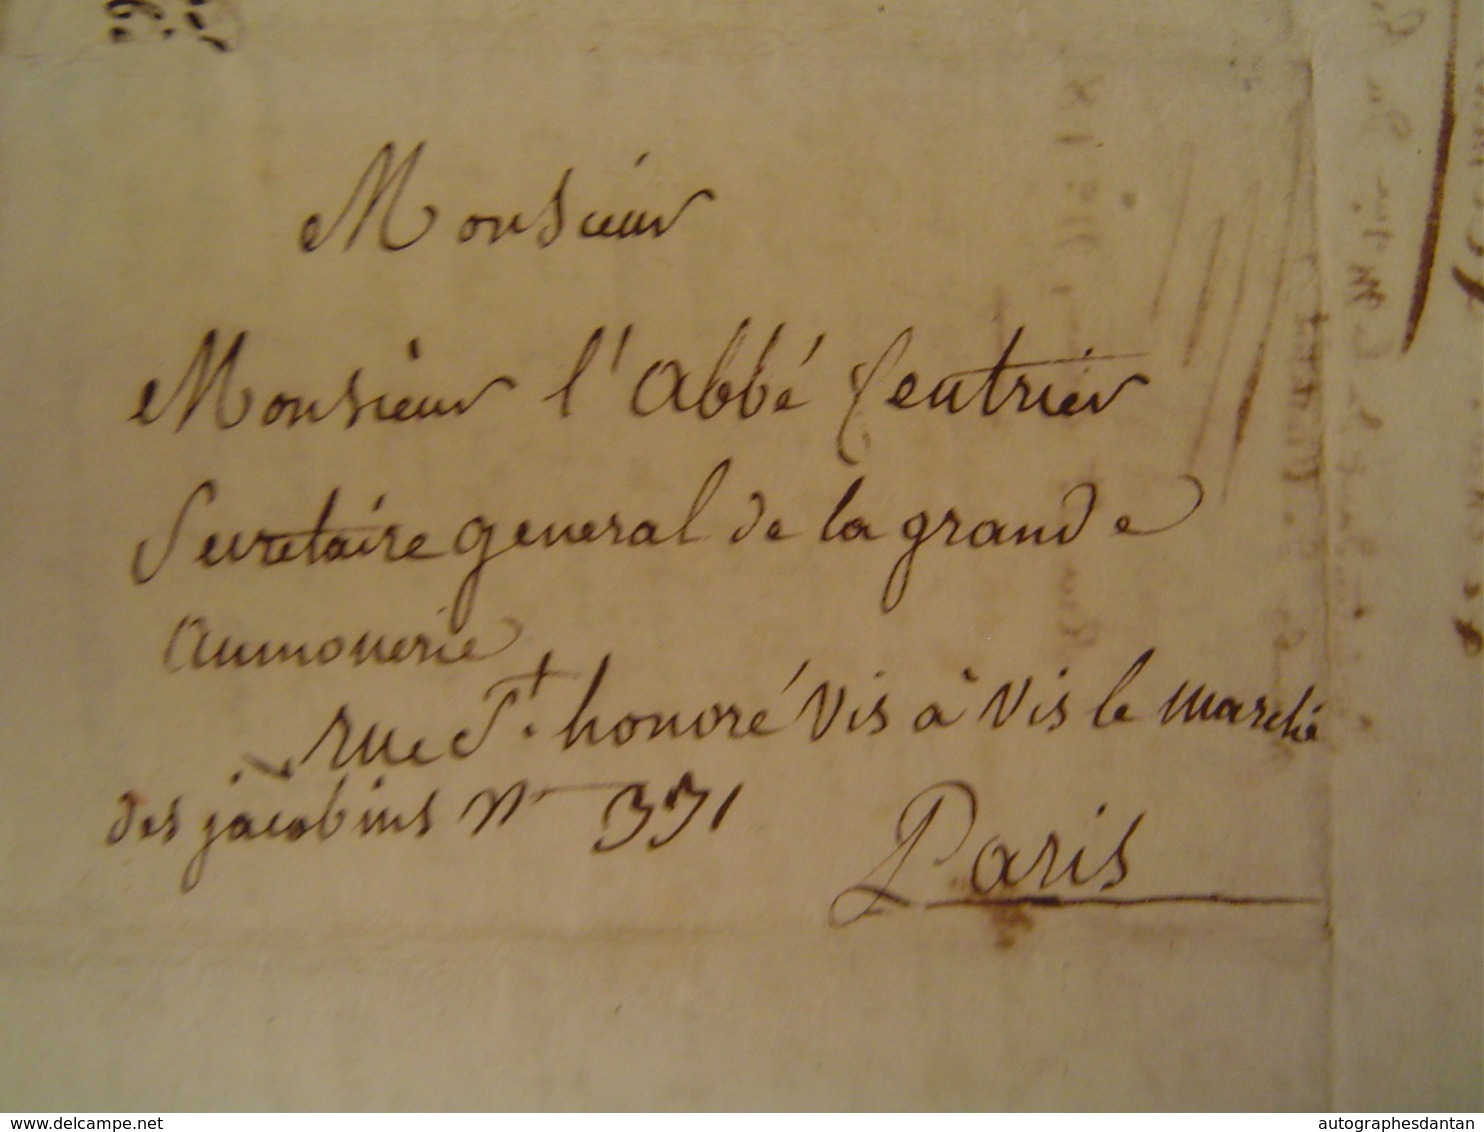 Monsieur
Monsieur l'abbé feutrier
Secretaire general de la grande
aumonerie
rue St. honoré vis à vis le marché
des jacobins No 331
Paris
delcampe.net
autographesdantan